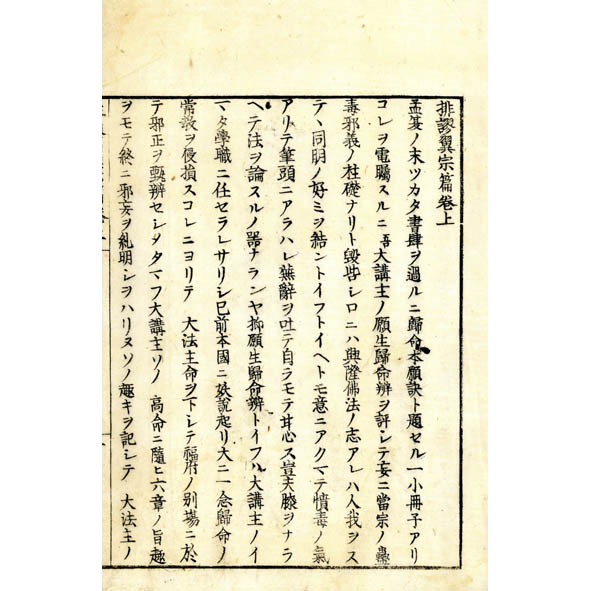 排謬翼宗篇卷上
孟夏ノ末ツカタ書肆ヲ過ルニ歸命本願訣ト題セル一小冊子アリ
コレヲ電矚スルニ吾大講主ノ願生歸命辨ヲ評シテ妄ニ當宗ノ蠱
毒邪義ノ柱礎ナリト毀呰シロニハ興隆佛法ノ志アレハ人我ヲス
テヽ同朋ノ好ミヲ結ントイフトイヘトモ意ニアクマテ憤毒ノ氣
アリテ筆頭ニアラハレ蕪辭ヲ吐テ自ラモテ甘心ス豈夫膝ヲナラ
ヘテ法ヲ論スルノ器ナランヤ抑願生歸命辨トイフハ大講主ノイ
マタ學職ニ任セラレサリシ已前本國ニ妖說起リ大ニ一念歸命ノ
常教ヲ侵損スコレニヨリテ 大法主命ヲ下シテ福府ノ別場ニ於
テ邪正ヲ甄辨セシメタマフ大講主ソノ 高命ニ隨ヒ六章ノ旨趣
ヲモテ終ニ邪妄ヲ糺明シヲハリヌソノ趣キヲ記シテ 大法主ノ